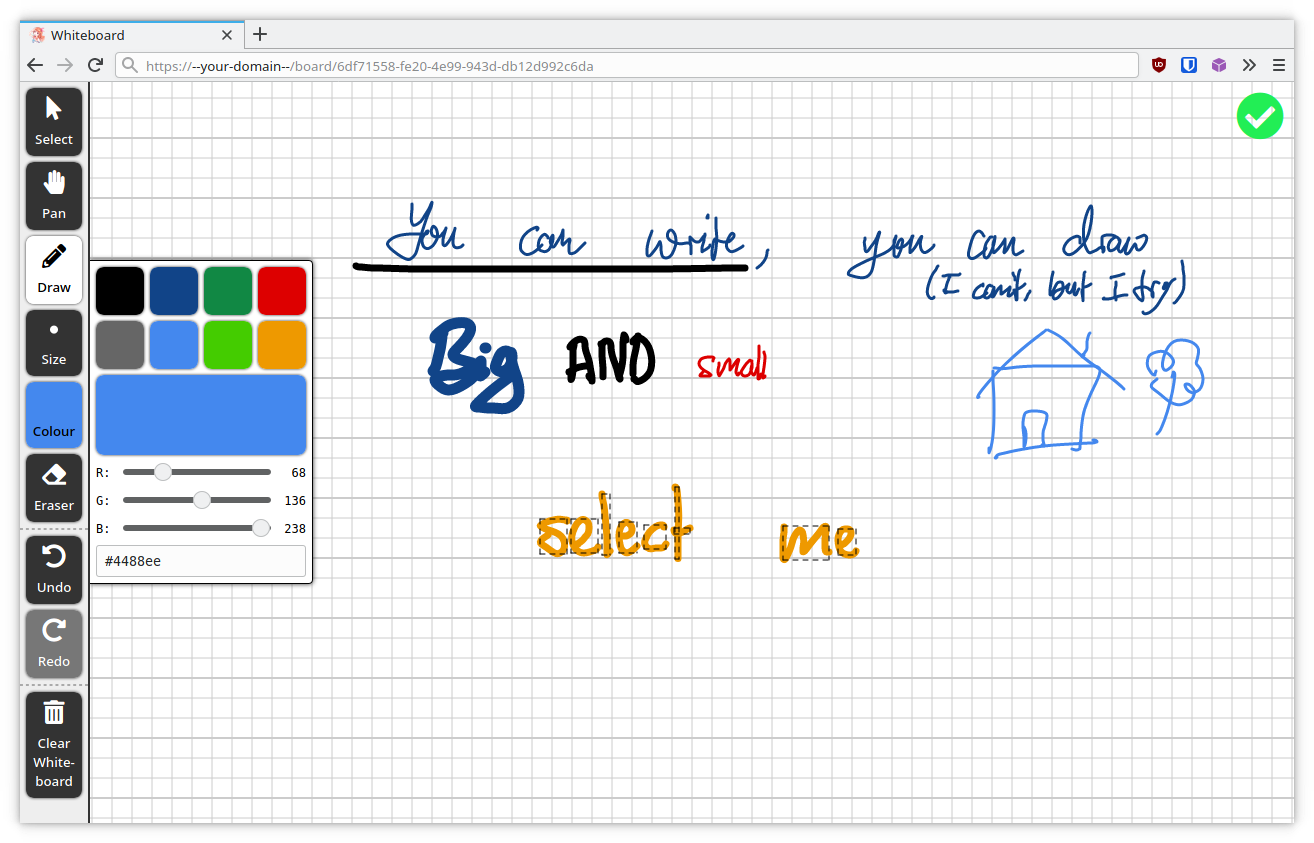 Whiteboard
https://--your-domain--/board/6df71558-fe20-4e99-943d-db12d992c6da
Select
Pan
Draw
Size
Colour
Eraser
Undo
Redo
Clear
White-
board
R: 68
G: 136
B: 238
#4488ee
You can write, you can draw
(I can't, but I try)
Big AND small
select me